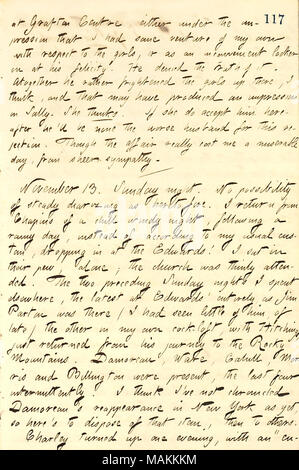 117
at Grafton Centre either under the im-
pression that I had some venture of my own
with respect to the girls, or as an incitement
in at his felicity. He denied the truth of it.
Altogether he rather frightened the girls up there, I
think, and that may have produced an impression
on Sally. She thinks. If she do accept him here-
after he'd be none the worse husband for this re-
jection. Though the affair really cost me a miserable
day, from sheer sympathy.
November 13. Sunday night. No possibility
of steady
I return from
Chapins of a chill windy night, following a
rainy day, instead of according to my usual cus-
tom, dropping in at the Edwards'. I sat in
their pew alone; the church was thinly atten-
ded. The two preceding Sunday nights I spent
elsewhere, the latest at Edwards' early as Jim
Parton was there (I had seen little of him, of
late) the other in my own cockloft, with
just returned from his journey to the Rocky
Mountains. Damoreau, Watt, Cahill, Mor-
ris and Bellington were present, the last four
intermittently. I think I've not chronicled
Damoreau's reappearance in New York as yet,
so here's to dispose of that item, then to others.
Charley turned up one evening, with an "en-
alamy
Image ID: MAKKKM
www.alamy.com